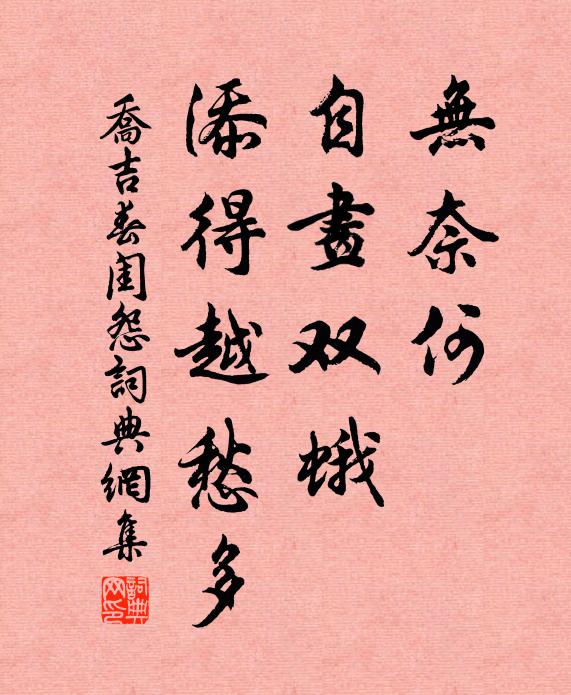 無奈何
自畫双蛾
添得越愁多
喬吉春闺怨詞典網集
詞典網印